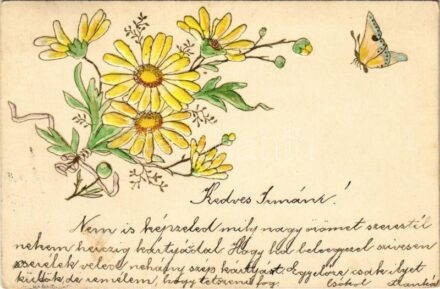 Kedves Irmánk!
Nem is képzeled mily nagy örömet szereztél
nekem herczig kártyáddal. Hogy ha beleegyezel szivesen
cserélek veled néhány szép kártyást. Egyelőre csak ilyet
küldök de remélem, hogy tetszeni fog.
Csókol